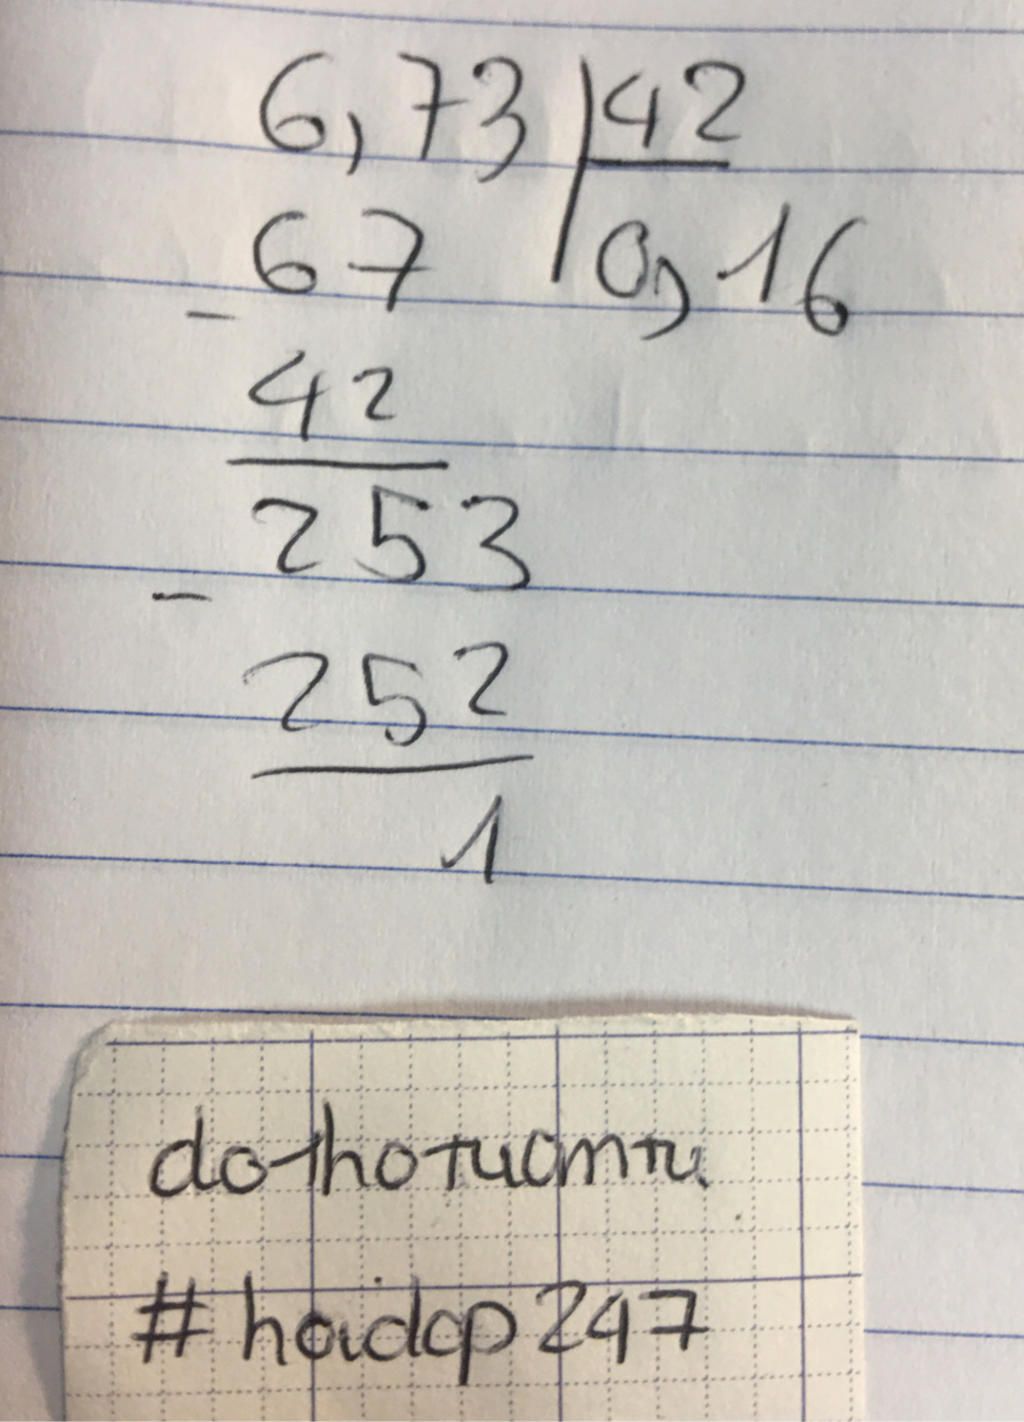 6,73 42
67 0,16
-
42
253
-
252
1
#hoidap247